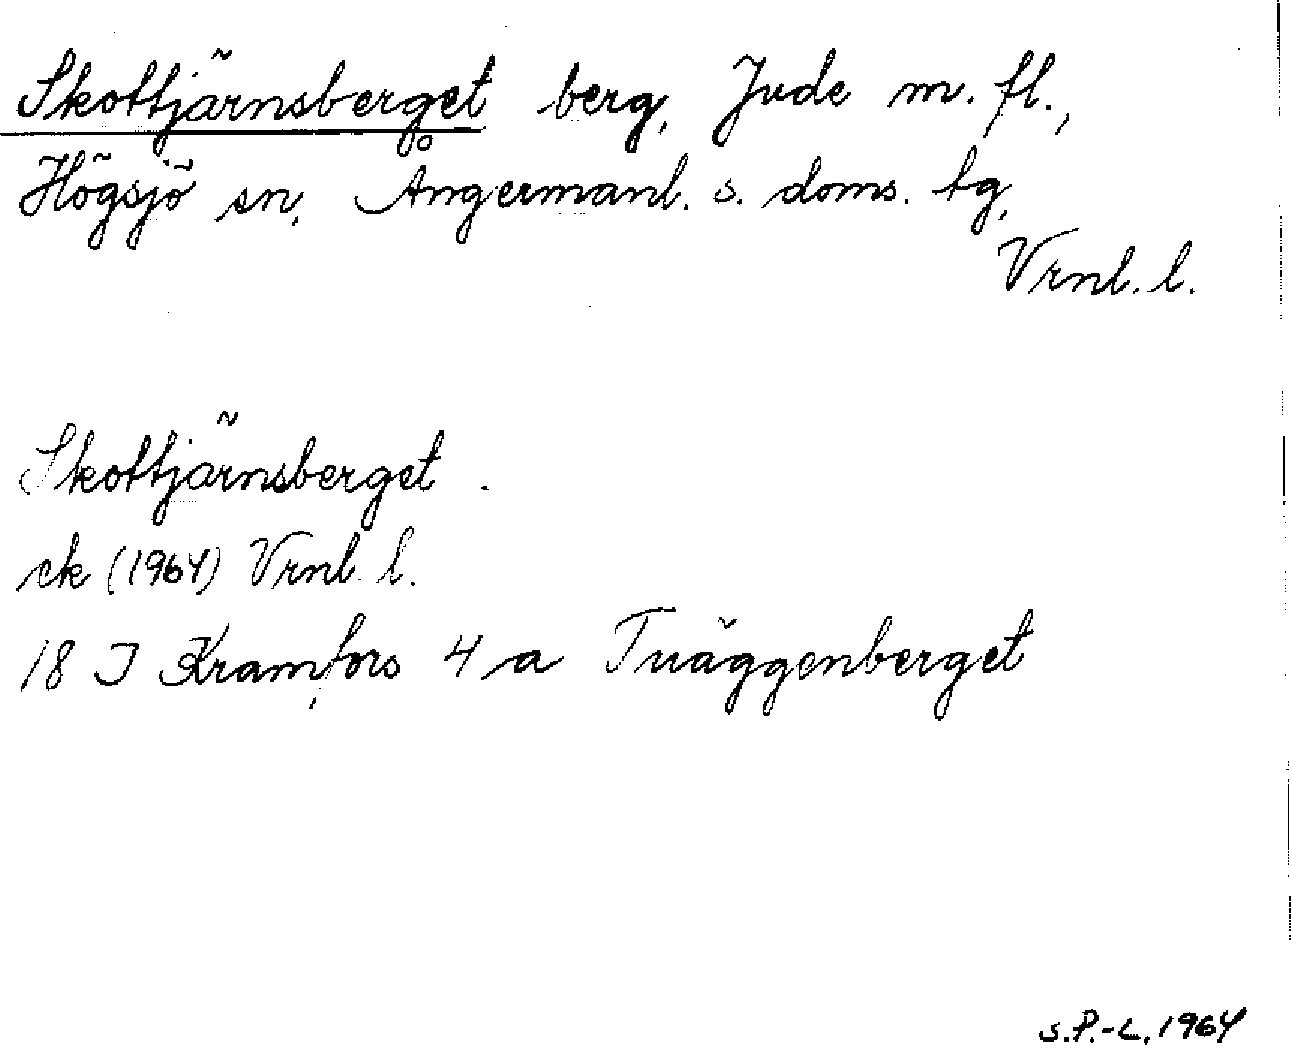 Skottjärnsberget berg, Jude m. fl.,
Högsjö sn, Ångermanl. s. doms. tg,
Vrnl. l.
Skottjärnsberget.
ek (1964) Vrnl. l.
18 I Kramfors 4 a Tväggenberget
S.P.-L. 1964